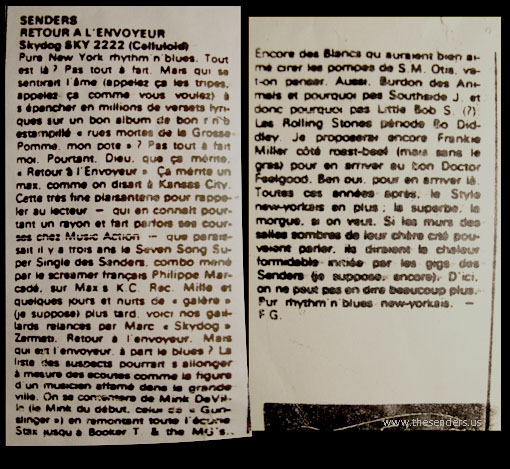 SENDERS
RETOUR A L'ENVOYEUR
Skydog SKY 2222 (Celluloid)
Pure New York rhythm'n'blues. Tout
est là ? Pas tout à fait. Mais qui se
sentirait l'âme (appelez ça les tripes,
appelez ça comme vous voulez) à
s'épancher en millions de versets lyri-
ques sur un bon album de bon r'n'b
estampillé « rues mortes de la Grosse
Pomme, mon pote » ? Pas tout à fait
moi. Pourtant, Dieu, que ça mérite,
« Retour à l'Envoyeur ». Ça mérite un
max, comme on disait à Kansas City.
Cette très fine plaisanterie pour rappe-
ler au lecteur — qui en connait pour-
tant un rayon et fait parfois ses cour-
ses chez Music Action — que parais-
sait il y a trois ans le Seven Song Su-
per Single des Senders, combo mené
par le screamer français Philippe Mar-
cadé, sur Max's K.C. Rec. Mille et
quelques jours et nuits de « galère »
(je suppose) plus tard, voici nos gail-
lards relancés par Marc « Skydog »
Zermati. Retour à l'envoyeur. Mais
qui est l'envoyeur, à part le blues ? La
liste des suspects pourrait s'allonger
à mesure des écoutes comme la figure
d'un musicien affamé dans la grande
ville. On se contentera de Mink DeVil-
le (le Mink du début, celui de « Gun-
slinger ») en remontant toute l'écurie
Stax jusqu'à Booker T. & the MG's.
Encore des Blancs qui auraient bien ai-
mé cirer les pompes de S.M. Otis, va-
t-on penser. Aussi, Burdon des Ani-
mals et pourquoi pas Southside J. et
donc pourquoi pas Little Bob S. (?).
Les Rolling Stones période Bo Did-
dley. Je proposerai encore Frankie
Miller côté roast-beef (mais sans le
gras) pour en arriver au bon Doctor
Feelgood. Ben oui, pour en arriver là.
Toutes ces années après, le Style
new-yorkais en plus : la superbe, la
morgue, si on veut. Si les murs des
salles sombres de leur chère cité pou-
vaient parler, ils diraient la chaleur
formidable initiée par les gigs des
Senders (je suppose, encore). D'ici,
on ne peut pas en dire beaucoup plus.
Pur rhythm'n'blues new-yorkais. —
F.G.
www.thesenders.us